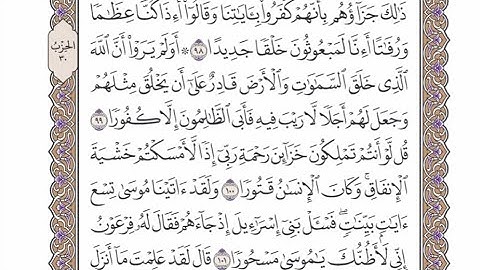 ذَٰلِكَ جَزَآؤُهُم بِأَنَّهُمْ كَفَرُوا۟ بِـَٔايَـٰتِنَا وَقَالُوٓا۟ أَءِذَا كُنَّا عِظَـٰمًا
وَرُفَـٰتًا أَءِنَّا لَمَبْعُوثُونَ خَلْقًا جَدِيدًا ٩٨ ۞ أَوَلَمْ يَرَوْا۟ أَنَّ ٱللَّهَ
ٱلَّذِى خَلَقَ ٱلسَّمَـٰوَٰتِ وَٱلْأَرْضَ قَادِرٌ عَلَىٰٓ أَن يَخْلُقَ مِثْلَهُمْ
وَجَعَلَ لَهُمْ أَجَلًا لَّا رَيْبَ فِيهِ فَأَبَى ٱلظَّـٰلِمُونَ إِلَّا كُفُورًا ٩٩
قُل لَّوْ أَنتُمْ تَمْلِكُونَ خَزَآئِنَ رَحْمَةِ رَبِّىٓ إِذًا لَّأَمْسَكْتُمْ خَشْيَةَ
ٱلْإِنفَاقِ ۚ وَكَانَ ٱلْإِنسَـٰنُ قَتُورًا ١٠٠ وَلَقَدْ ءَاتَيْنَا مُوسَىٰ تِسْعَ
ءَايَـٰتٍۭ بَيِّنَـٰتٍ ۖ فَسْـَٔلْ بَنِىٓ إِسْرَٰٓءِيلَ إِذْ جَآءَهُمْ فَقَالَ لَهُۥ فِرْعَوْنُ
إِنِّى لَأَظُنُّكَ يَـٰمُوسَىٰ مَسْحُورًا ١٠١ قَالَ لَقَدْ عَلِمْتَ مَآ أَنزَلَ
الحِزْبُ
٣٠